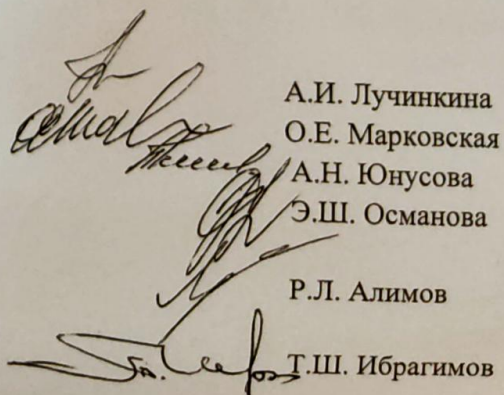 А.И. Лучинкина
О.Е. Марковская
А.Н. Юнусова
Э.Ш. Османова
Р.Л. Алимов
Т.Ш. Ибрагимов